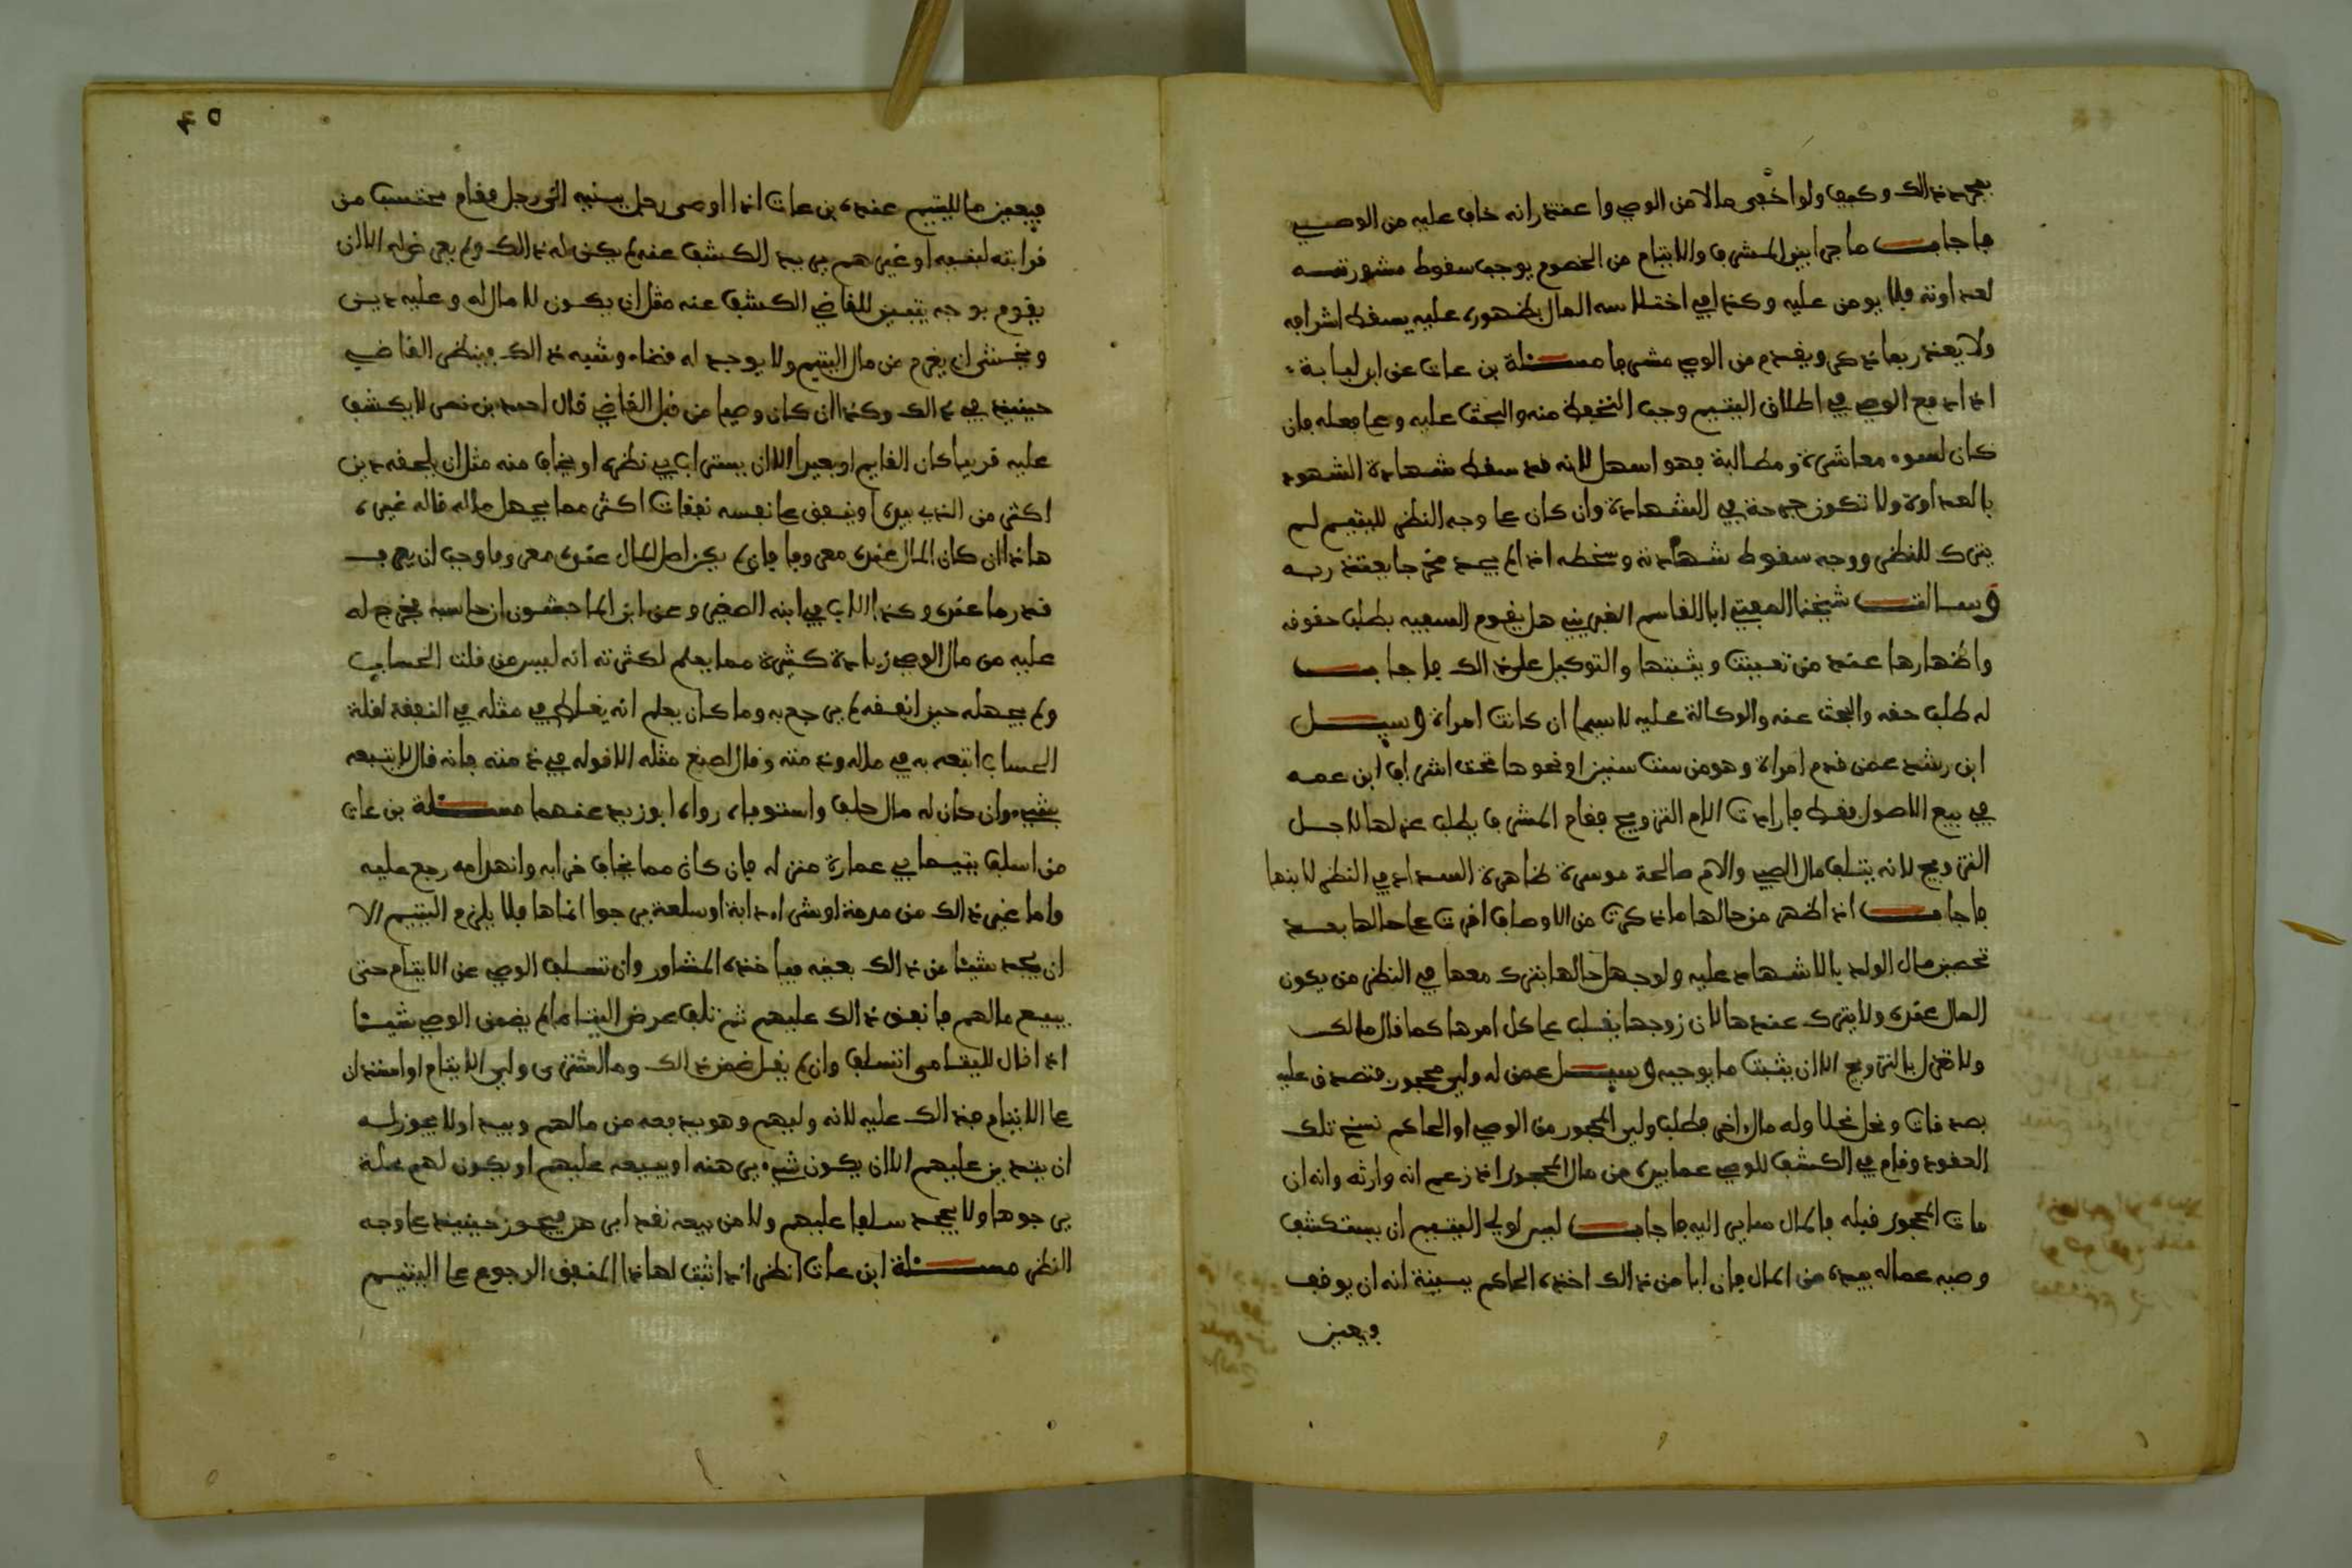 بمجرد ذالك وكيف ولو اخفى مالا من الوصي واعتذر انه خاف عليه من الوصي
فاجاب ما جرا بين المشرف والايتام من الخصوم يوجب سقوط مشورته
لعداوته فلا يومن عليه وكذا في اختلاسه المال بظهوره عليه يسقط اشرافه
ولا يعذر بما ذكر ويقدم من الوصي مشرفا مسئلة بن عات عن ابن لبابة
اذا دفع الوصي في اطلاق اليتيم وجب التحفظ منه والبحث عليه وعما فعله فان
كان لسوء معاشرة ومطالبة فهو اسهل لانه قد سقط شهادة الشهود
بالعداوة ولا تكون جرحة في الشهادة وان كان على وجه النظر لليتيم لم
يترك للنظر ووجه سقوط شهادته وسخطه اذا لم يجد مخرجا يعتذر به
وسالت شيخنا المفتي ابا القاسم الغبريني هل يقوم السفيه بطلب حقوقه
واظهارها عند من تعينت ويثبتها والتوكيل على ذالك فاجاب
له طلب حقه والبحث عنه والوكالة عليه لاسيما ان كانت امراة وسيل
ابن رشد عمن قدم امراة وهو من ست سنين او نحوها تحت اشراف ابن عمه
في بيع الاصول فقط فارادت الام التزويج فقام المشرف يطلب عزلها لاجل
التزويج لانه يتلف مال الصبي والام صالحة موسرة ظاهرة السداد في النظر لابنها
فاجاب اذا ظهر من حالها ما ذكرت من الاوصاف اقرت على حالها بعد
تحصين مال الولد بالاشهاد عليه ولو جهل حالها يترك معها في النظر من يكون
المال عنده ولا يترك عندها لان زوجها يغلب على كل امرها كما قال مالك
ولا تعزل بالتزويج الا ان يثبت ما يوجبه وسيل عمن له ولي محجور فتصدق عليه
بصدقات ونحل نحلا وله مال اخر فطلب ولي المحجور من الوصي او الحاكم نسخ تلك
العقود وقام في الكشف للوصي عما بيده من مال المحجور اذ زعم انه وارثه وانه ان
مات المحجور قبله فالمال صاير اليه فاجاب ليس لولي اليتيم ان يستكشف
وصيه عما له بيده من المال فان ابا من ذالك اخذه الحاكم ببينة انه ان يوقف
ويعين
٤٥
فيعين ما لليتيم عنده بن عات اذا اوصى رجل ببنيه الى رجل فقام محتسب من
قرابته لنفسه او غيرهم يريد الكشف عنه لم يكن له ذالك ولم يعرض له الا ان
يقوم بوجه يتعين للقاضي الكشف عنه مثل ان يكون لا مال له وعليه دين
ويخشى ان يغرم من مال اليتيم ولا يوجد له قضاء وشبه ذالك فينظر القاضي
حينيذ في ذالك وكذا ان كان وصيا من قبل القاضي قال احمد بن نصر لا يكشف
عليه قريبا كان القايم او بعيدا الا ان يستراب في نظره او يخاف منه مثل ان يلحقه دين
اكثر من الذي بيده او ينفق على نفسه نفقات اكثر مما يحمل ماله قاله غيره
هاذا ان كان المال عنده معروفا فان لم يكن اصل المال عنده معروفا وجب ان يعرف
قدر ما عنده وكذا الاب في ابنه الصغير وعن ابن الماجشون ان حاسبه فخرج له
عليه من مال الوصي زيادة كثيرة مما يعلم لكثرته انه ليس من فلت الحساب
ولم يجهله حين انفقه لم يرجع به وما كان يعلم انه يغلط في مثله في النفقة لقلة
الحساب اتبعه به في ماله وذمته وقال اصبغ مثله الا قوله في ذمته فانه قال لا يتبعه
بشيء وان كان له مال حلف واستوفاه رواه ابو زيد عنهما مسئلة بن عات
من اسلف يتيما في عمارة منزله فان كان مما يخاف خرابه وانهدامه رجع عليه
واما غير ذالك من مرمة او شراء دابة او سلعة يرجوا نماها فلا يلزم اليتيم الا
ان يجد شيئا من ذالك بعينه فياخذه المشاور وان تسلف الوصي عن الايتام حتى
يبيع مالهم فانفق ذالك عليهم ثم تلف عرض اليتاما لم يضمن الوصي شيئا
اذا قال لليتامى اتسلف وان لم يقل ضمن ذالك وما اشترى ولي الايتام او استدان
على الايتام فذالك عليه لانه وليهم وهو يدفعه من مالهم وبيد اولا يجوز له
ان يتدين عليهم الا ان يكون شيء يرهنه او يبيعه عليهم او يكون لهم غلة
يرجوها ولا يجد سلفا عليهم ولا من يبيعه نقدا بيرهن فيجوز حينيذ على وجه
النظر مسئلة ابن عات انظر اذا اثبت لهاذا المنفق الرجوع على اليتيم